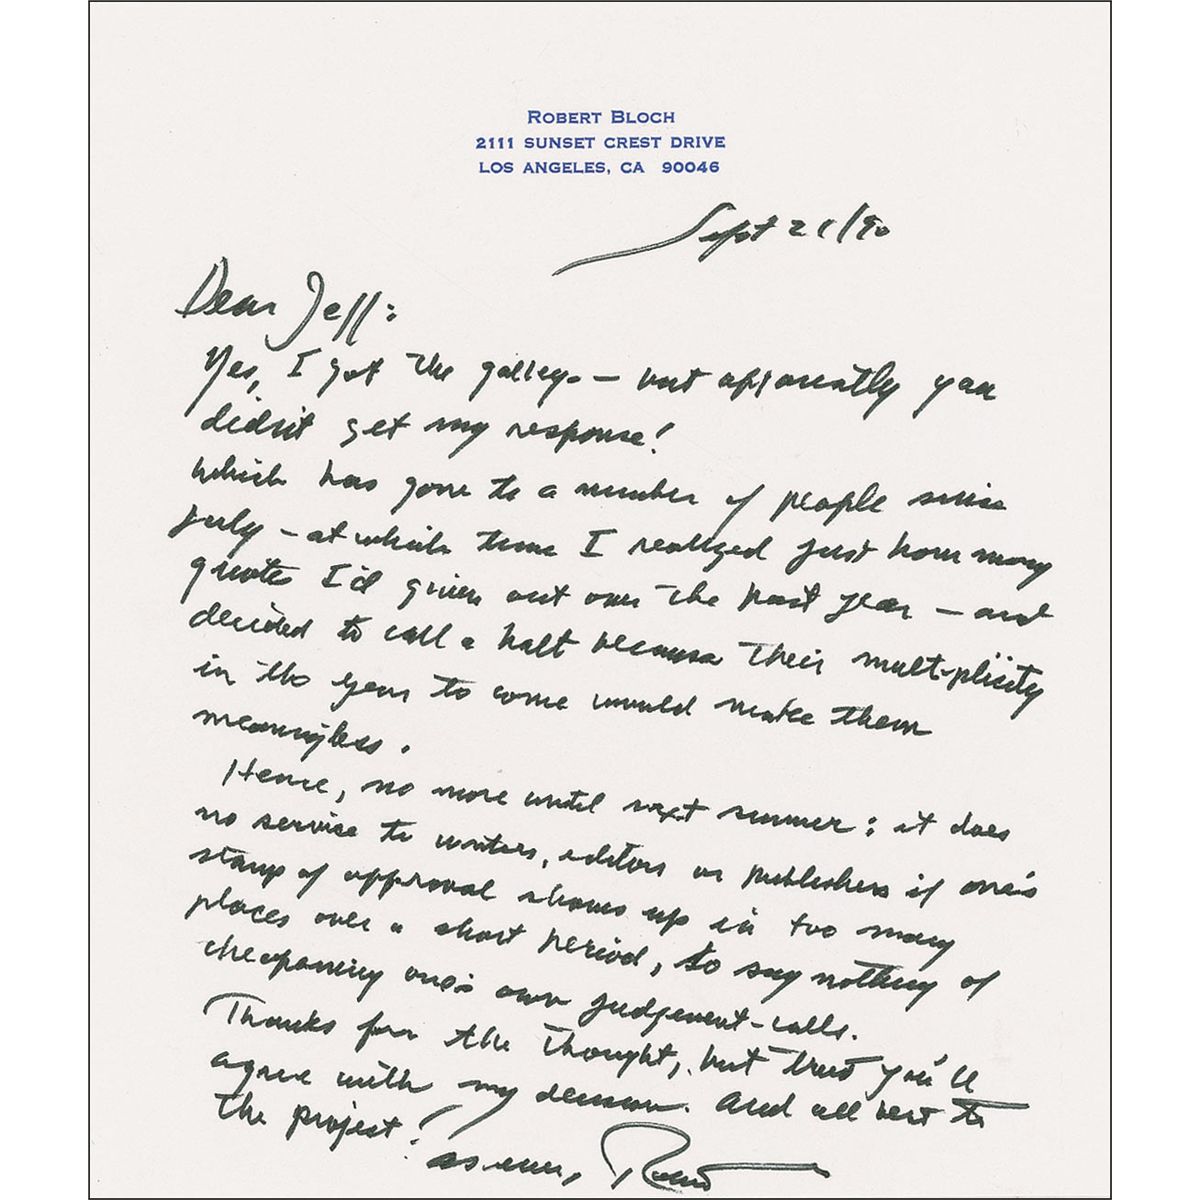 ROBERT BLOCH
2111 SUNSET CREST DRIVE
LOS ANGELES, CA 90046
Sept 21/90
Dear Jeff:
Yes, I got the galleys — but apparently you
didn't get my response!
Which has gone to a number of people since
July — at which time I realized just how many
quotes I'd given out over the past year — and
decided to call a halt because their multiplicity
in the year to come would make them
meaningless.
Hence, no more until next summer: it does
no service to writers, editors or publishers if one's
stamp of approval shows up in too many
places over a short period, to say nothing of
cheapening one's own judgement-calls.
Thanks for the thought, but trust you'll
agree with my decision. And all best to
the project!
As ever,